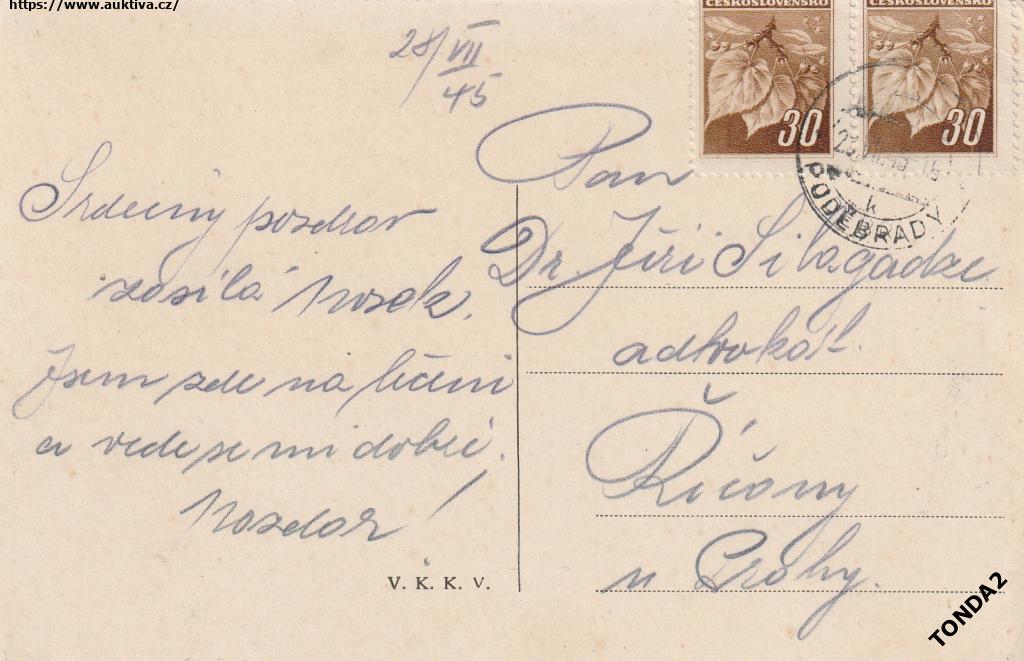 https://www.auktiva.cz/
28/VII
45
ČESKOSLOVENSKO
30
ČESKOSLOVENSKO
30
k
PODĚBRADY
Srdečný pozdrav
zasílá Nosek.
Jsem zde na léčení
a vede se mi dobře.
Nazdar!
V. K. K. V.
Pan
Dr. Jiří Silagadze
advokát.
Říčany
u Prahy.
TONDA2